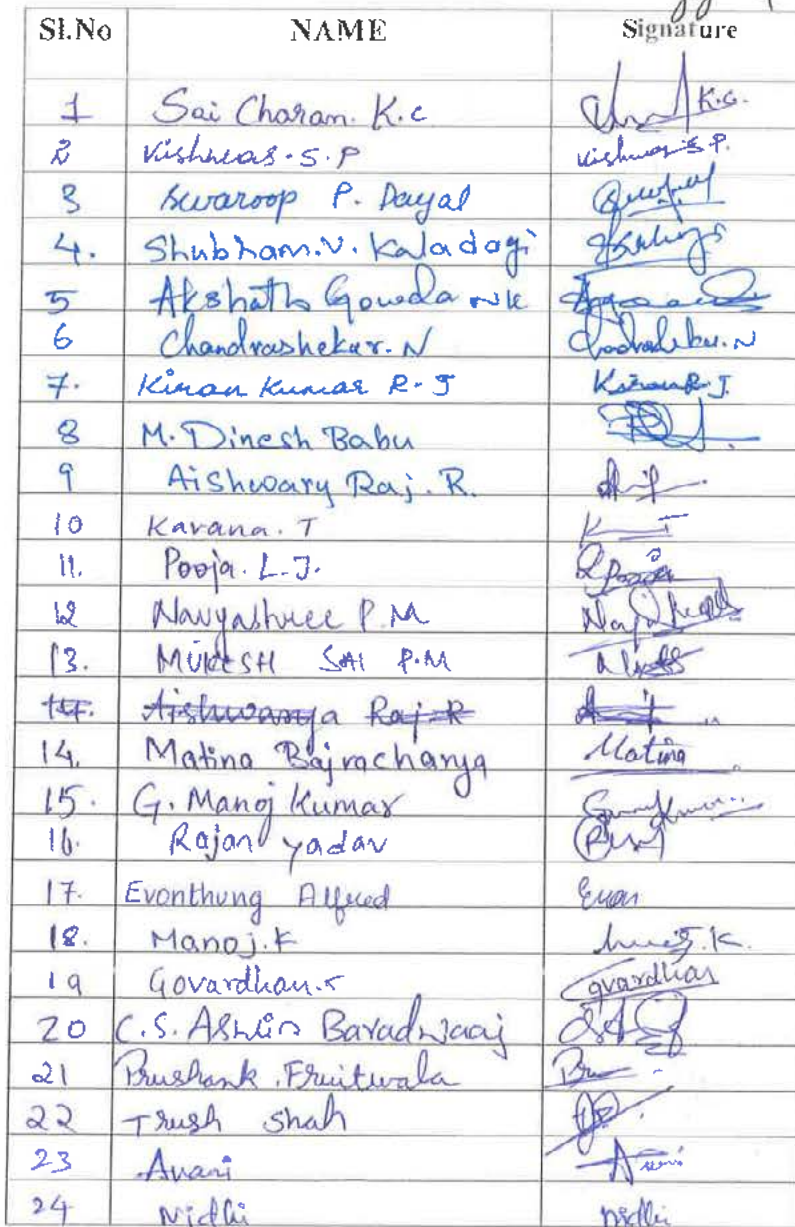 Sl.No NAME Signature
1 Sai Charan. K.c K.C.
2 Vishwas. S. P Vishwas S P.
3 Swaroop P. Dayal
4. Shubham. V. Kaladagi
5 Akshath Gowda NK
6 Chandrashekar. N
7. Kiran Kumar R. J Kiran R. J.
8 M. Dinesh Babu
9 Aishwary Raj. R.
10 Kavana. T K T
11. Pooja. L. J. Pooja
12 Navyashree P. M
13. MUKESH SAI P.M
14. Aishwarya Raj R
14. Matina Bajracharya Matina
15. G. Manoj Kumar
16. Rajan Yadav
17. Evonthung Alfred Evon
18. Manoj. K
19 Govardhan. S Gvardhan
20 C. S. Ashlin Baradwaaj
21 Prushank Fruitwala
22 Trush Shah
23 Avani
24 Nidhi Nidhi